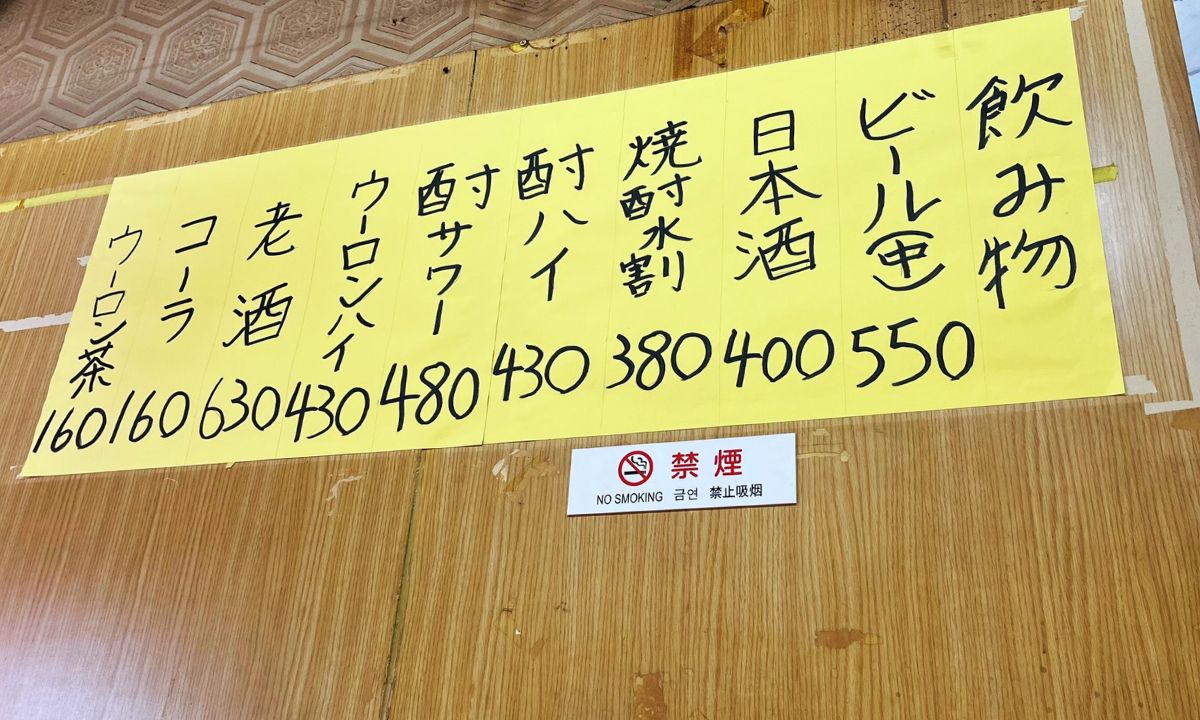 飲み物
ビール(中) 550
日本酒 400
焼酎水割 380
酎ハイ 430
酎サワー 480
ウーロンハイ 430
老酒 630
コーラ 160
ウーロン茶 160
禁煙
NO SMOKING 금연 禁止吸烟